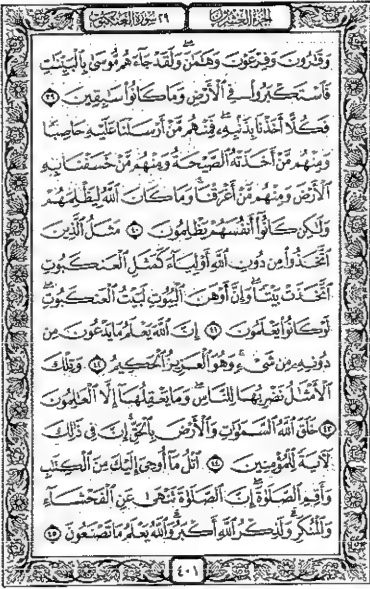 الجزء العشرون
٢٩ سورة العنكبوت
وَقَٰرُونَ وَفِرْعَوْنَ وَهَٰمَٰنَۖ وَلَقَدْ جَآءَهُم مُّوسَىٰ بِٱلْبَيِّنَٰتِ
فَٱسْتَكْبَرُوا۟ فِى ٱلْأَرْضِ وَمَا كَانُوا۟ سَٰبِقِينَ ٣٩
فَكُلًّا أَخَذْنَا بِذَنۢبِهِۦۖ فَمِنْهُم مَّنْ أَرْسَلْنَا عَلَيْهِ حَاصِبًا
وَمِنْهُم مَّنْ أَخَذَتْهُ ٱلصَّيْحَةُ وَمِنْهُم مَّنْ خَسَفْنَا بِهِ
ٱلْأَرْضَ وَمِنْهُم مَّنْ أَغْرَقْنَاۚ وَمَا كَانَ ٱللَّهُ لِيَظْلِمَهُمْ
وَلَٰكِن كَانُوٓا۟ أَنفُسَهُمْ يَظْلِمُونَ ٤٠ مَثَلُ ٱلَّذِينَ
ٱتَّخَذُوا۟ مِن دُونِ ٱللَّهِ أَوْلِيَآءَ كَمَثَلِ ٱلْعَنكَبُوتِ
ٱتَّخَذَتْ بَيْتًاۖ وَإِنَّ أَوْهَنَ ٱلْبُيُوتِ لَبَيْتُ ٱلْعَنكَبُوتِۖ
لَوْ كَانُوا۟ يَعْلَمُونَ ٤١ إِنَّ ٱللَّهَ يَعْلَمُ مَا يَدْعُونَ مِن
دُونِهِۦ مِن شَىْءٍۚ وَهُوَ ٱلْعَزِيزُ ٱلْحَكِيمُ ٤٢ وَتِلْكَ
ٱلْأَمْثَٰلُ نَضْرِبُهَا لِلنَّاسِۖ وَمَا يَعْقِلُهَآ إِلَّا ٱلْعَٰلِمُونَ
٤٣ خَلَقَ ٱللَّهُ ٱلسَّمَٰوَٰتِ وَٱلْأَرْضَ بِٱلْحَقِّۚ إِنَّ فِى ذَٰلِكَ
لَءَايَةً لِّلْمُؤْمِنِينَ ٤٤ ٱتْلُ مَآ أُوحِىَ إِلَيْكَ مِنَ ٱلْكِتَٰبِ
وَأَقِمِ ٱلصَّلَوٰةَۖ إِنَّ ٱلصَّلَوٰةَ تَنْهَىٰ عَنِ ٱلْفَحْشَآءِ
وَٱلْمُنكَرِۗ وَلَذِكْرُ ٱللَّهِ أَكْبَرُۗ وَٱللَّهُ يَعْلَمُ مَا تَصْنَعُونَ ٤٥
٤٠١